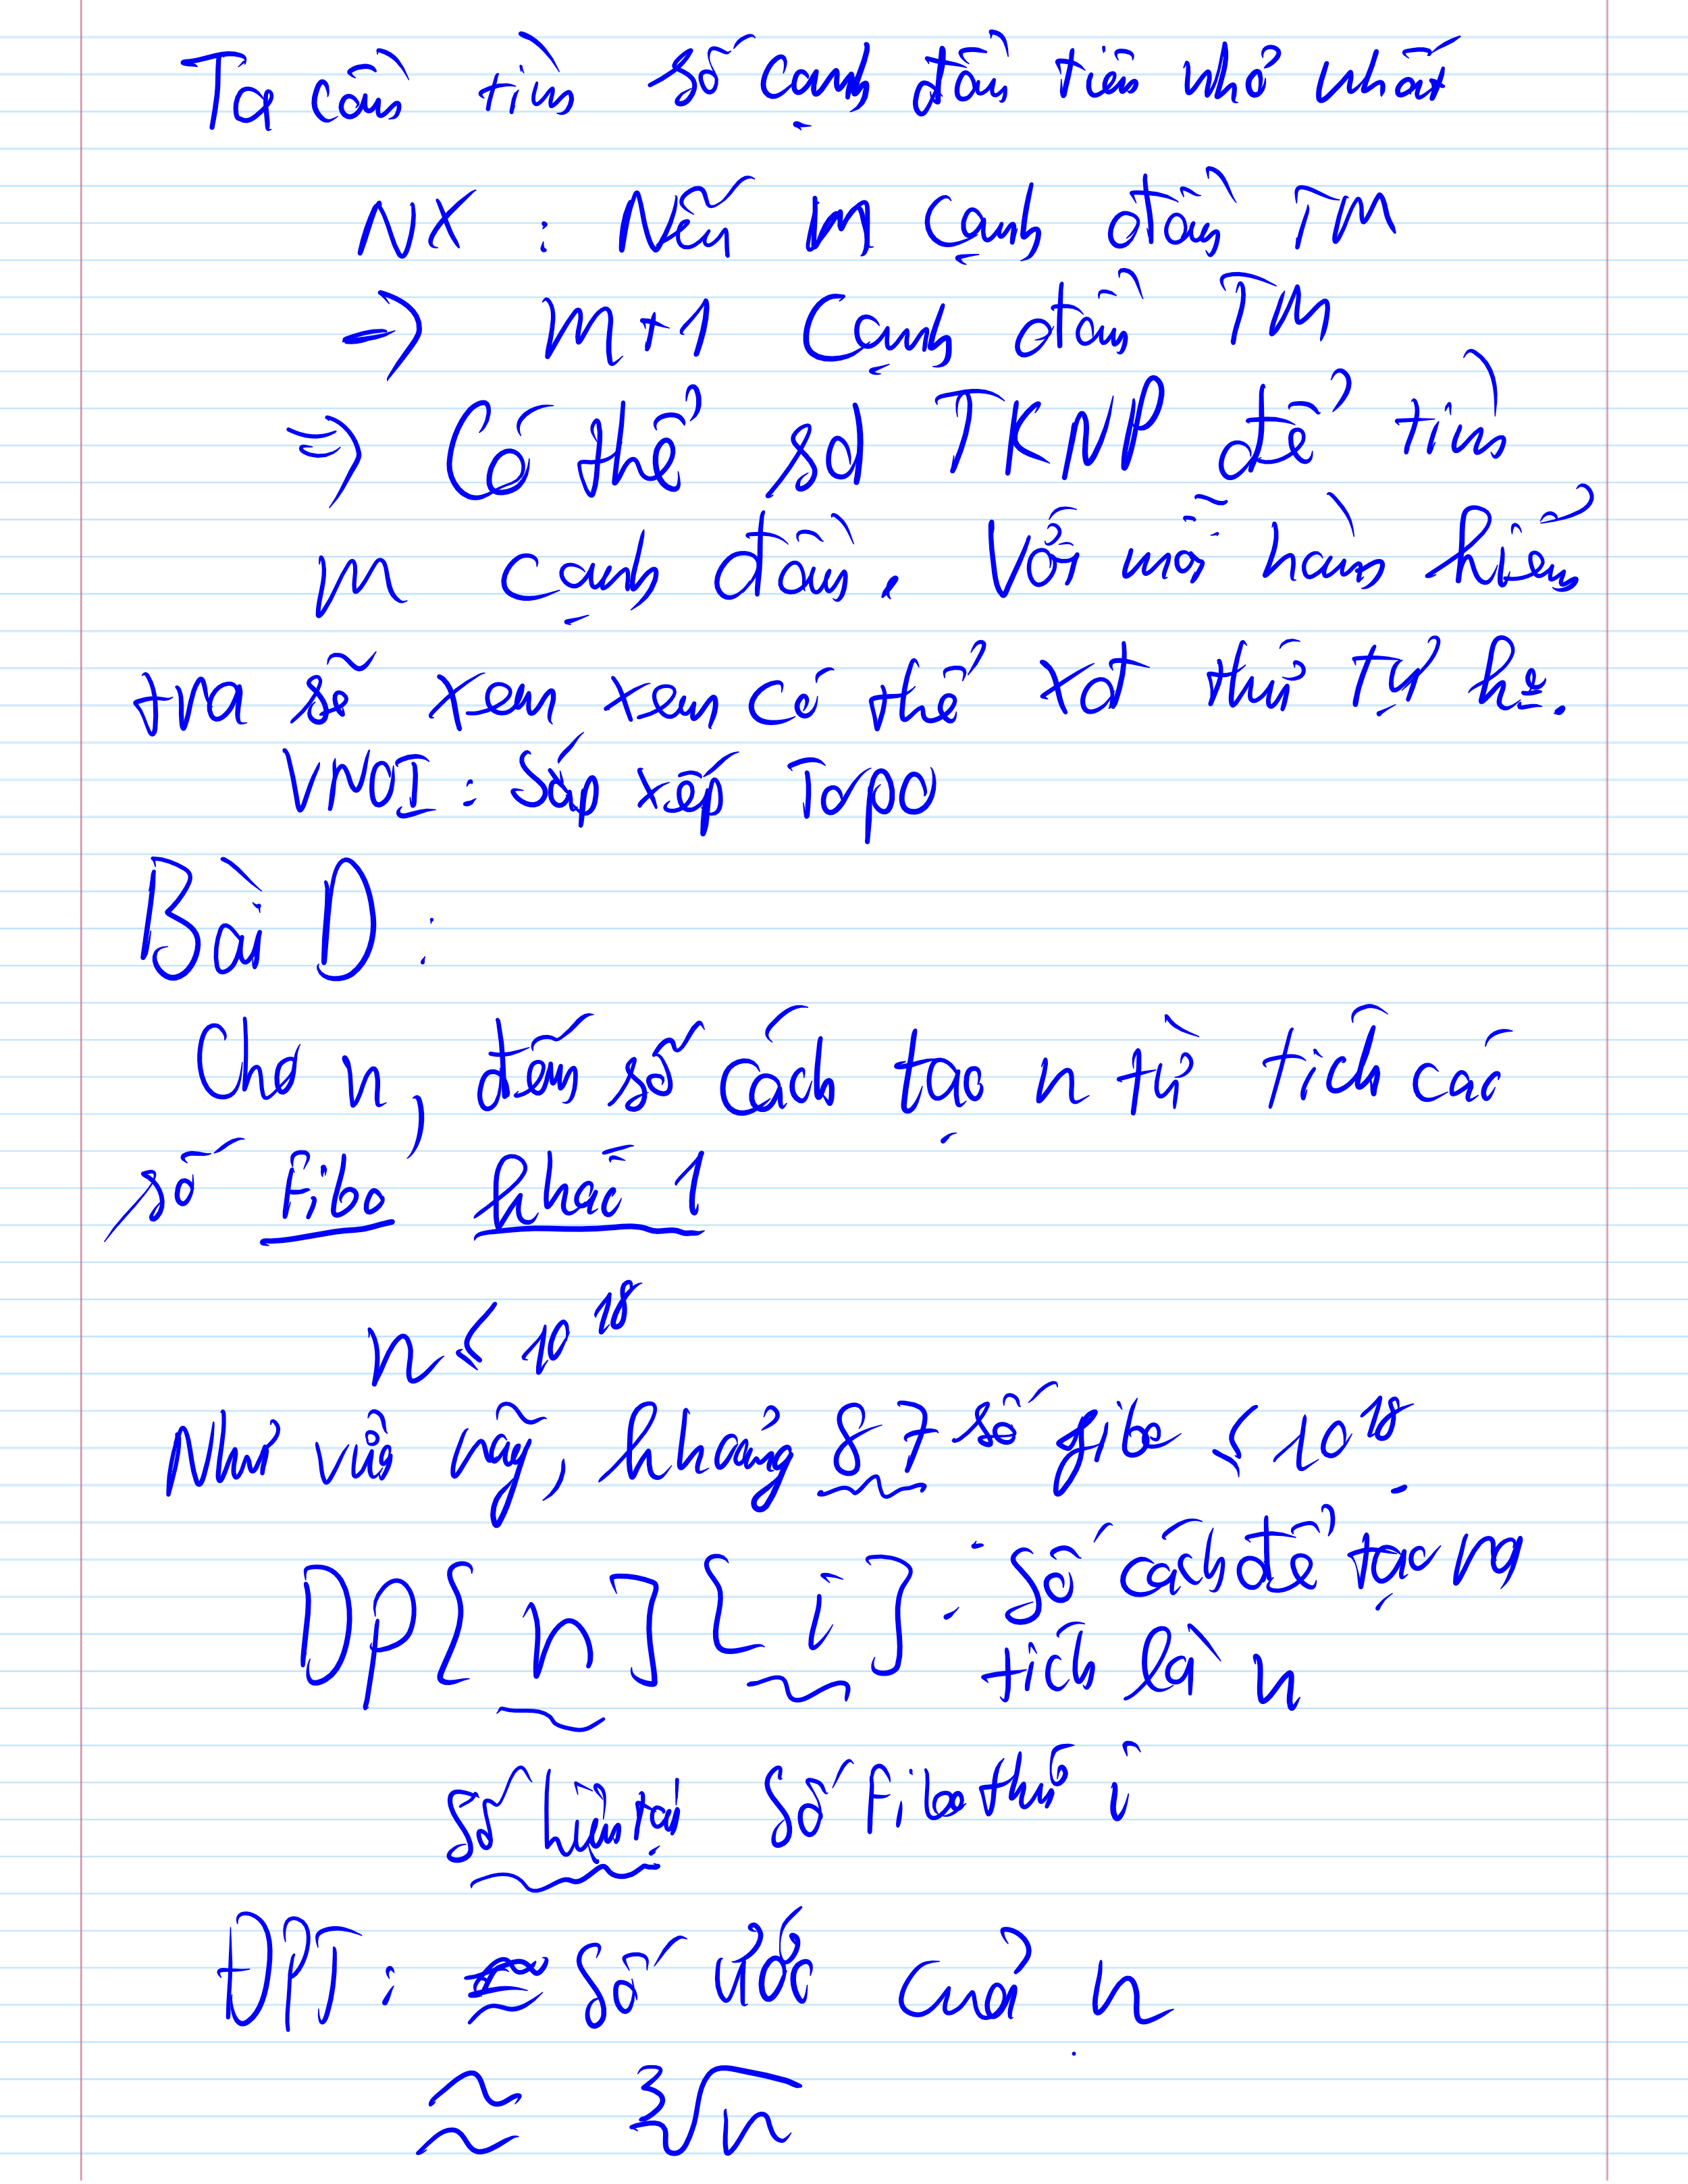 Ta cần tìm số cạnh đầu tiên nhỏ nhất
NX : Nếu m cạnh đầu TM
→ m+1 cạnh đầu TM
⇒ Có thể sd TKNP để tìm
m cạnh đầu. Với mỗi hàm kiểm
tra sẽ xem xem có thể xđ thứ tự k.
VNOI : Sắp xếp Topo
Bài D :
Cho n, đếm số cách tạo n từ tích các
số Fibo khác 1
n ≤ 10^18
Như vậy, khoảng 87 số fibo ≤ 10^18.
DP[n][i] : số cách để tạo ra
tích là n
số hiện tại số Fibo thứ i
ĐPT : số ước của n
≈ ∛n